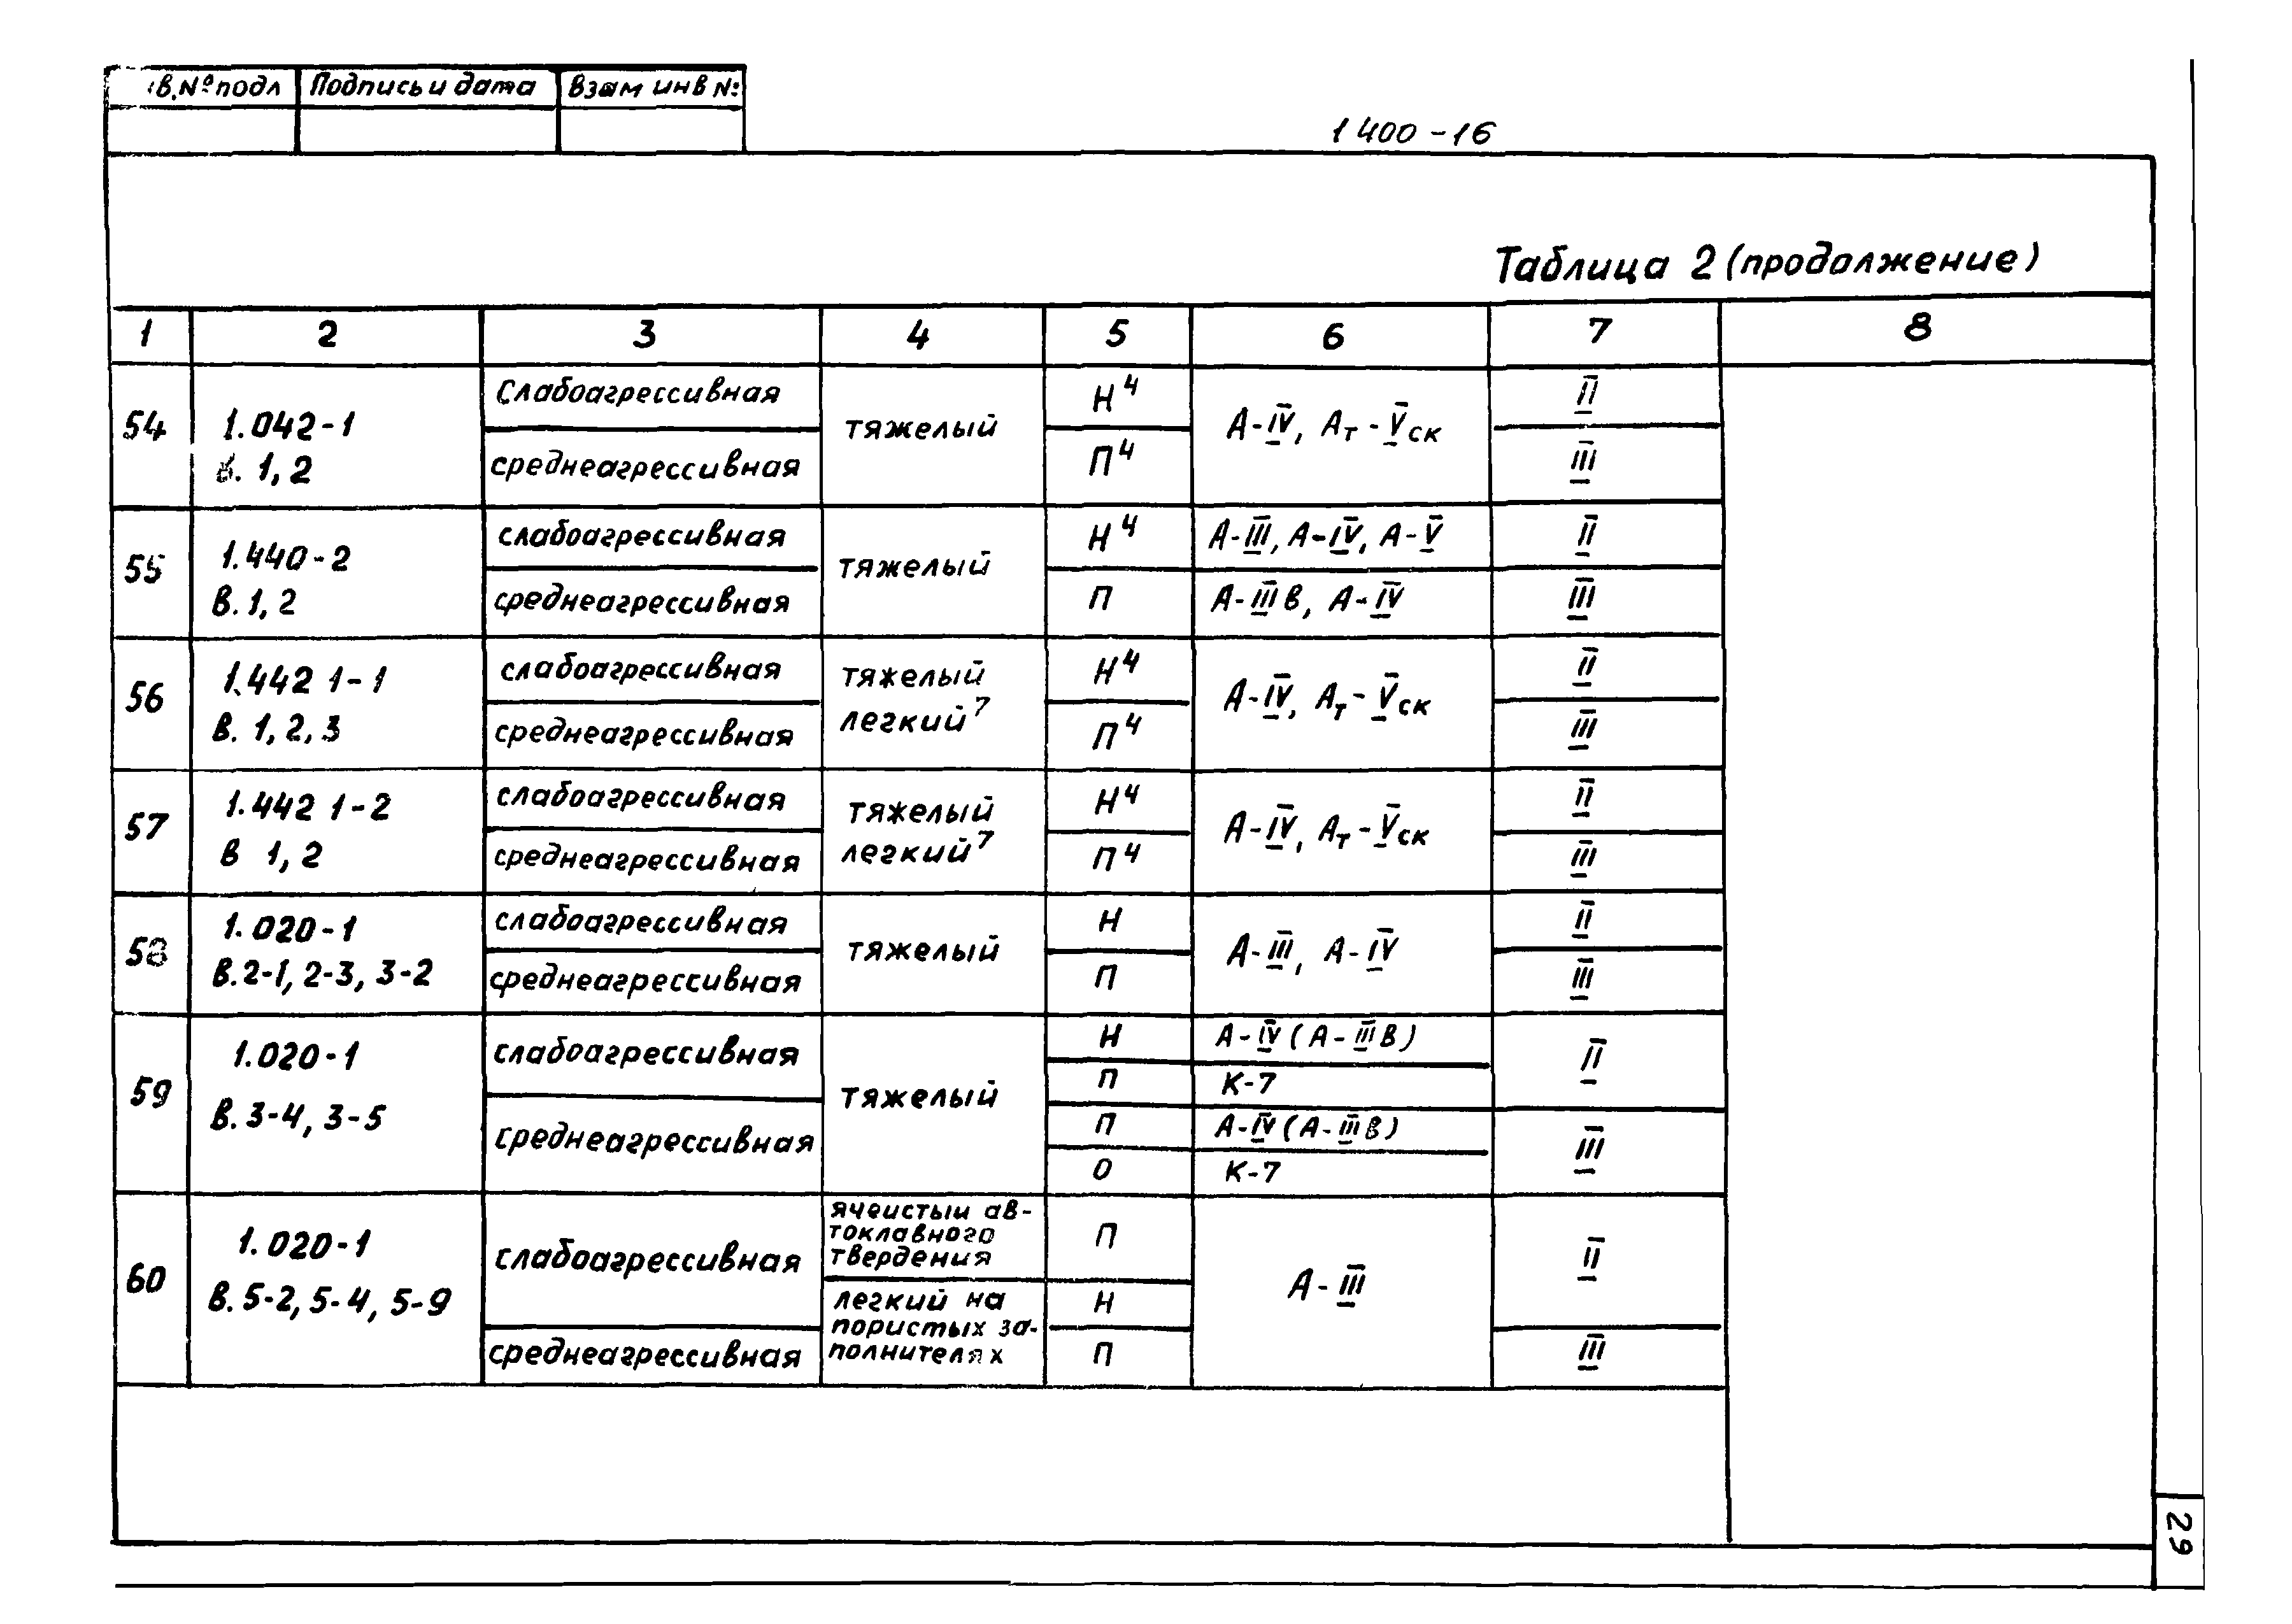 в.№ подл Подпись и дата Взам инв №:
1 400-16
Таблица 2 (продолжение)
1 2 3 4 5 6 7 8
54
1.042-1
в. 1, 2
Слабоагрессивная
среднеагрессивная
тяжелый
Н⁴
П⁴
А-IV, Ат-Vск
II
III
55
1.440-2
В. 1, 2
слабоагрессивная
среднеагрессивная
тяжелый
Н⁴
П
А-III, А-IV, А-V
А-IIIв, А-IV
II
III
56
1.442 1-1
В. 1, 2, 3
слабоагрессивная
среднеагрессивная
тяжелый
легкий⁷
Н⁴
П⁴
А-IV, Ат-Vск
II
III
57
1.442 1-2
В 1, 2
слабоагрессивная
среднеагрессивная
тяжелый
легкий⁷
Н⁴
П⁴
А-IV, Ат-Vск
II
III
58
1.020-1
В. 2-1, 2-3, 3-2
слабоагрессивная
среднеагрессивная
тяжелый
Н
П
А-III, А-IV
II
III
59
1.020-1
В. 3-4, 3-5
слабоагрессивная
среднеагрессивная
тяжелый
Н
П
П
О
А-IV (А-IIIВ)
К-7
А-IV (А-IIIв)
К-7
II
III
60
1.020-1
В. 5-2, 5-4, 5-9
слабоагрессивная
среднеагрессивная
ячеистый ав-
токлавного
твердения
легкий на
пористых за-
полнителях
П
Н
П
А-III
II
III
29